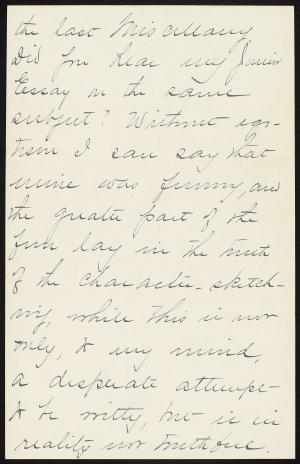 the last Miscellany.
Did you hear my Junior
Essay on the same
subject? Without ego-
tism I can say that
mine was funny, and
the greater part of the
fun lay in the truth
of the character-sketch-
ing, while this is not
only, to my mind,
a desperate attempt
to be witty, but is in
reality not truthful.